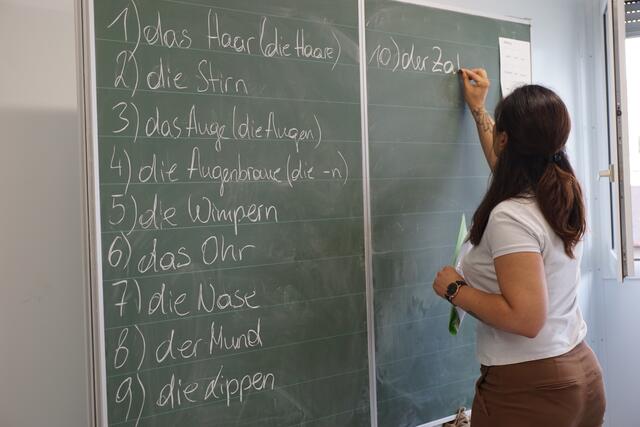 1) das Haar (die Haare)
2) die Stirn
3) das Auge (die Augen)
4) die Augenbraue (die -n)
5) die Wimpern
6) das Ohr
7) die Nase
8) der Mund
9) die Lippen
10) der Za